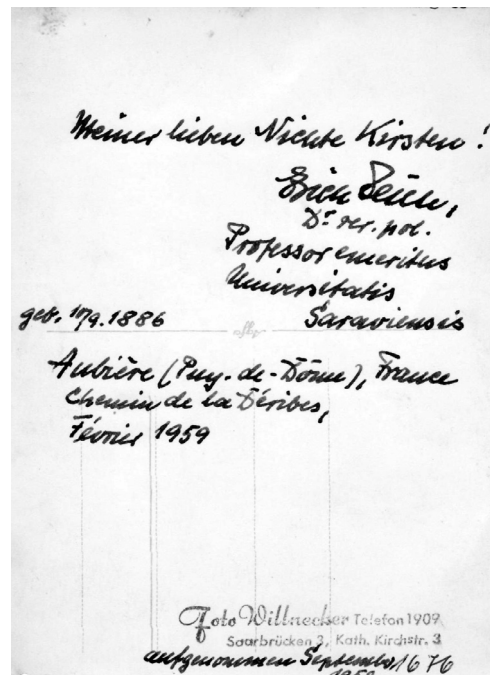 Meiner lieben Nichte Kirsten!
Erich
Dr. rer. pol.
Professor emeritus
Universitatis
Saraviensis
geb. 10/9.1886
Aubière (Puy-de-Dôme), France
Chemin de la
Février 1959
Foto Willnecker Telefon 1909
Saarbrücken 3, Kath. Kirchstr. 3
aufgenommen September